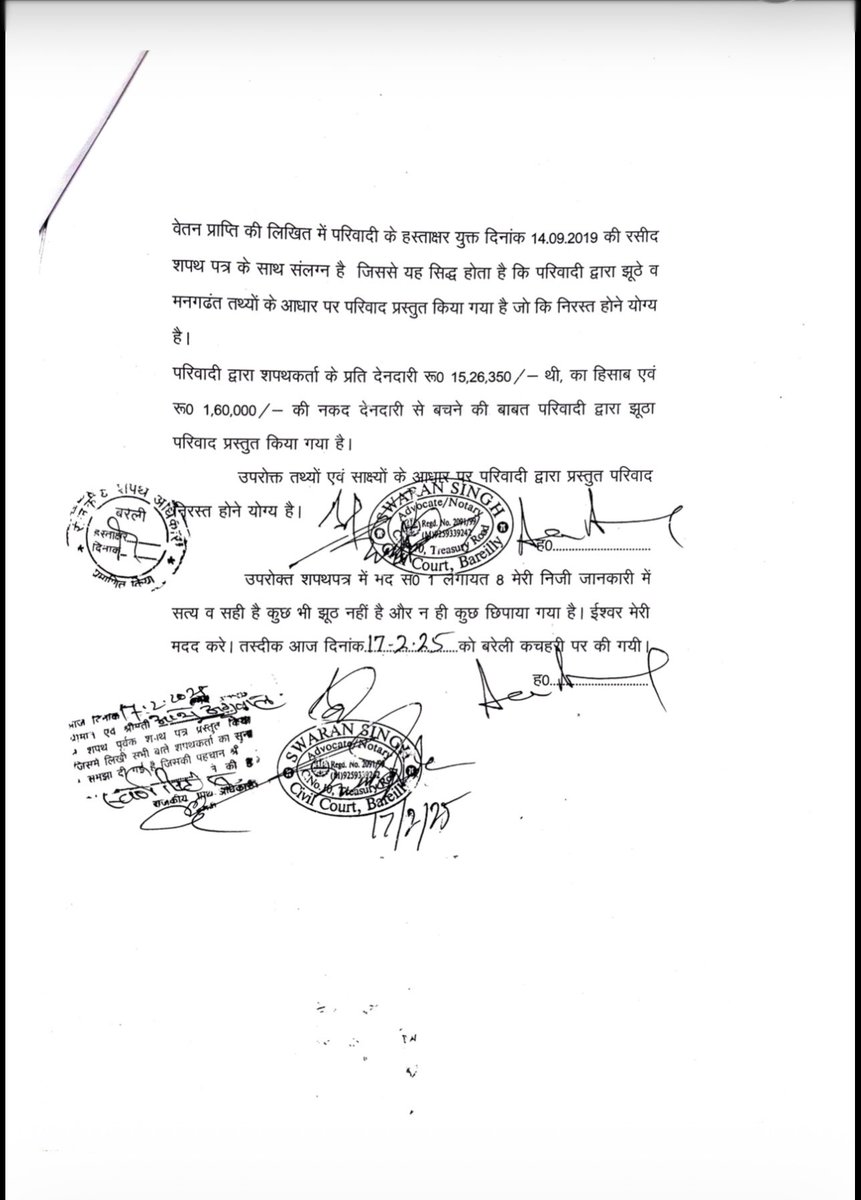 वेतन प्राप्ति की लिखित में परिवादी के हस्ताक्षर युक्त दिनांक 14.09.2019 की रसीद
शपथ पत्र के साथ संलग्न है जिससे यह सिद्ध होता है कि परिवादी द्वारा झूठे व
मनगढंत तथ्यों के आधार पर परिवाद प्रस्तुत किया गया है जो कि निरस्त होने योग्य
है।
परिवादी द्वारा शपथकर्ता के प्रति देनदारी रू0 15,26,350/– थी, का हिसाब एवं
रू0 1,60,000/– की नकद देनदारी से बचने की बाबत परिवादी द्वारा झूठा
परिवाद प्रस्तुत किया गया है।
उपरोक्त तथ्यों एवं साक्ष्यों के आधार पर परिवादी द्वारा प्रस्तुत परिवाद
निरस्त होने योग्य है।
शपथ अधिकारी
बरेली
हस्ताक्षर
दिनांक
प्रमाणित किया
SWARAN SINGH
Advocate/Notary
Regd. No. 2091/99
(M)9259339242
Treasury Road
Court, Bareilly
ह0
उपरोक्त शपथपत्र में मद स0 1 लगायत 8 मेरी निजी जानकारी में
सत्य व सही है कुछ भी झूठ नहीं है और न ही कुछ छिपाया गया है। ईश्वर मेरी
मदद करे। तस्दीक आज दिनांक 17-2-25 को बरेली कचहरी पर की गयी।
ह0
आज दिनांक 17.2.2025
एवं श्रीमती
शपथ पूर्वक शपथ पत्र प्रस्तुत किया
जिसमे लिखी सभी बाते शपथकर्ता को सुना
समझा दी गई है जिसकी पहचान श्री
ने की है
राजकीय शपथ अधिकारी
SWARAN SINGH
Advocate/Notary
Regd. No. 2091/99
(M)9259339242
C.No. 10, Treasury Road
Civil Court, Bareilly
17/2/25